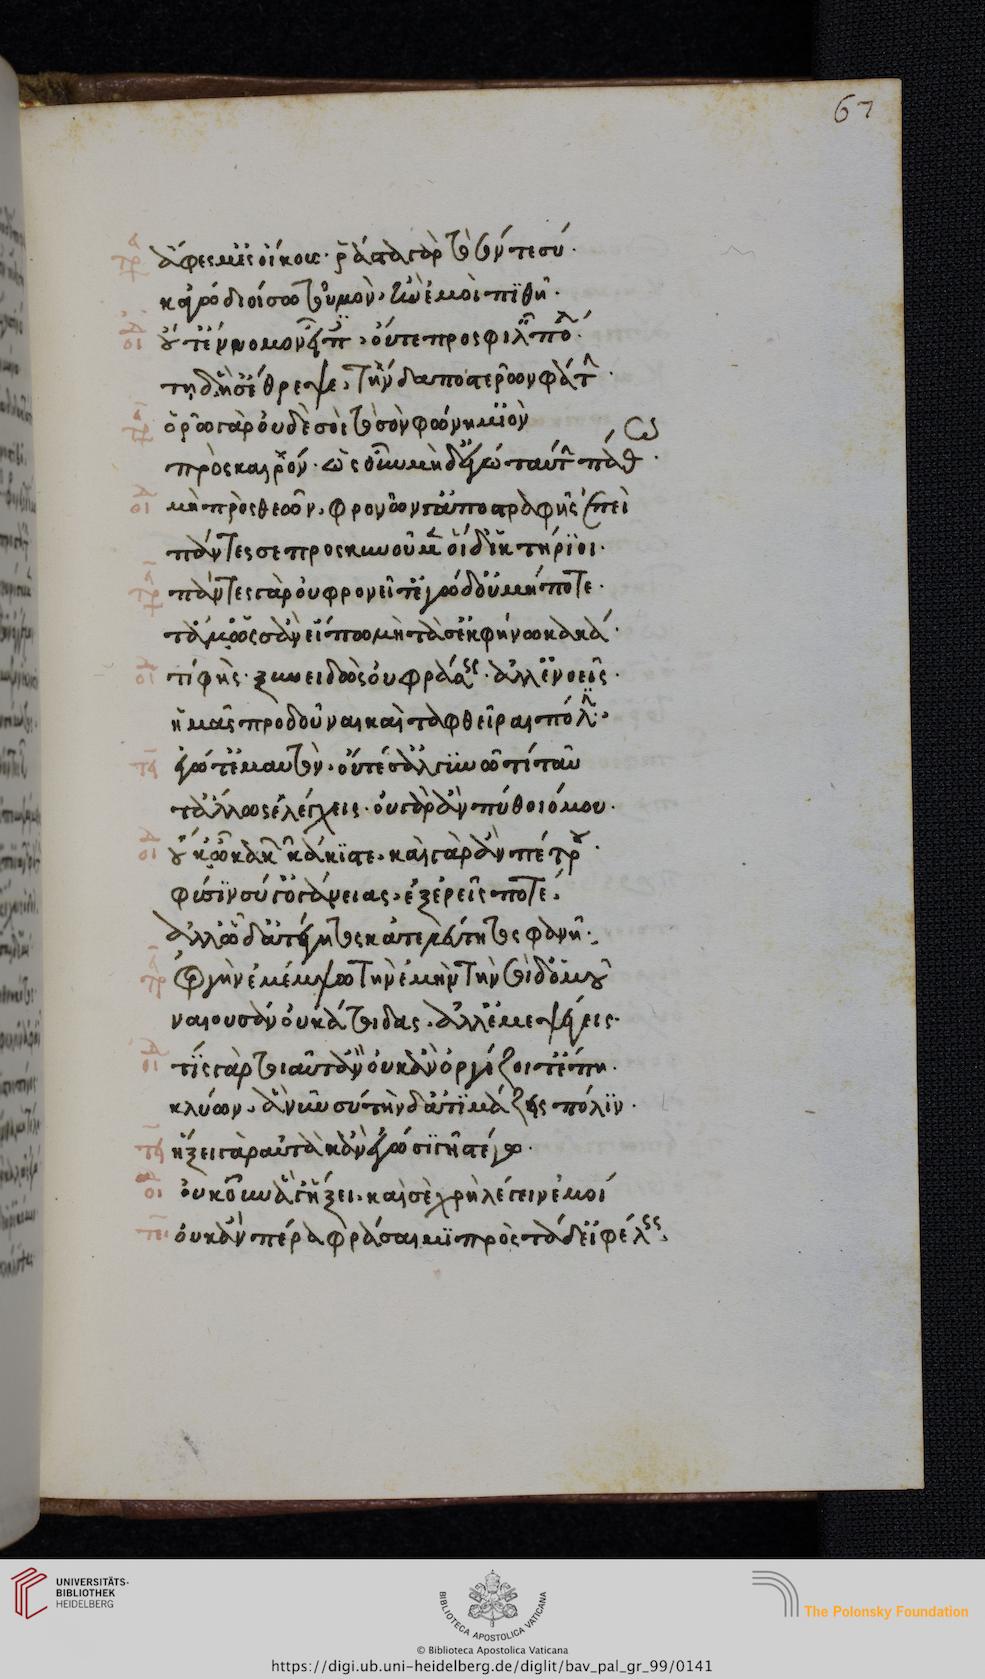 67
ἄφες μ' ἐς οἴκους· ῥᾷστα γὰρ τὸ σόν τε σὺ·
κἀγὼ διοίσω τοὐμὸν, ἢν ἐμοὶ πίθῃ·
οι οὔτ' ἔννομον εἶπας, οὔτε προσφιλὲς πόλει·
τῇδ' ἥ σ' ἔθρεψε, τήνδ' ἀποστερῶν φάτιν·
τρ ὁρῶ γὰρ οὐδὲ σοὶ τὸ σὸν φώνημ' ἰὸν
πρὸς καιρόν· ὡς οὖν μηδ' ἐγὼ ταυτὸν πάθω·
οι μὴ πρὸς θεῶν, φρονῶν γ' ἀποστραφῇς ἐπεὶ
πάντες σε προσκυνοῦμεν οἵδ' ἱκτήριοι·
τρ πάντες γὰρ οὐ φρονεῖτ' ἐγὼ δ' οὐ μήποτε·
τἄμ' ὡς ἂν εἴπω μὴ τὰ σ' ἐκφήνω κακά·
οι τί φής· ξυνειδὼς οὐ φράσεις· ἀλλ' ἐννοεῖς·
ἡμᾶς προδοῦναι καὶ καταφθεῖραι πόλιν·
ἐγώ τ' ἐμαυτὸν, οὔτε σ' ἀλγυνῶ τί ταῦ
τ' ἄλλως ἐλέγχεις· οὐ γὰρ ἂν πύθοιό μου·
οι οὐκ ὦ κακῶν κάκιστε, καὶ γὰρ ἂν πέτρου
φύσιν σύ γ' ὀργάνειας, ἐξερεῖς ποτέ,
ἀλλ' ὧδ' ἄτεγκτος κἀτελεύτητος φανῇ·
τρ ὀργὴν ἐμέμψω τὴν ἐμὴν τὴν σοὶ δ' ὁμοῦ
ναίουσαν οὐ κατεῖδες, ἀλλ' ἐμὲ ψέγεις·
οι τίς γὰρ τοιαῦτ' ἂν οὐκ ἂν ὀργίζοιτ' ἔπη·
κλύων, ἃ νῦν σὺ τήνδ' ἀτιμάζεις πόλιν·
ἥξει γὰρ αὐτὰ κἂν ἐγὼ σιγῇ στέγω·
οι οὐκοῦν ἅ γ' ἥξει, καὶ σὲ χρὴ λέγειν ἐμοί
οὐκ ἂν πέρα φράσαιμι πρὸς τάδ' εἰ θέλεις,
UNIVERSITÄTS-
BIBLIOTHEK
HEIDELBERG
BIBLIOTECA APOSTOLICA VATICANA
The Polonsky Foundation
© Biblioteca Apostolica Vaticana
https://digi.ub.uni-heidelberg.de/diglit/bav_pal_gr_99/0141